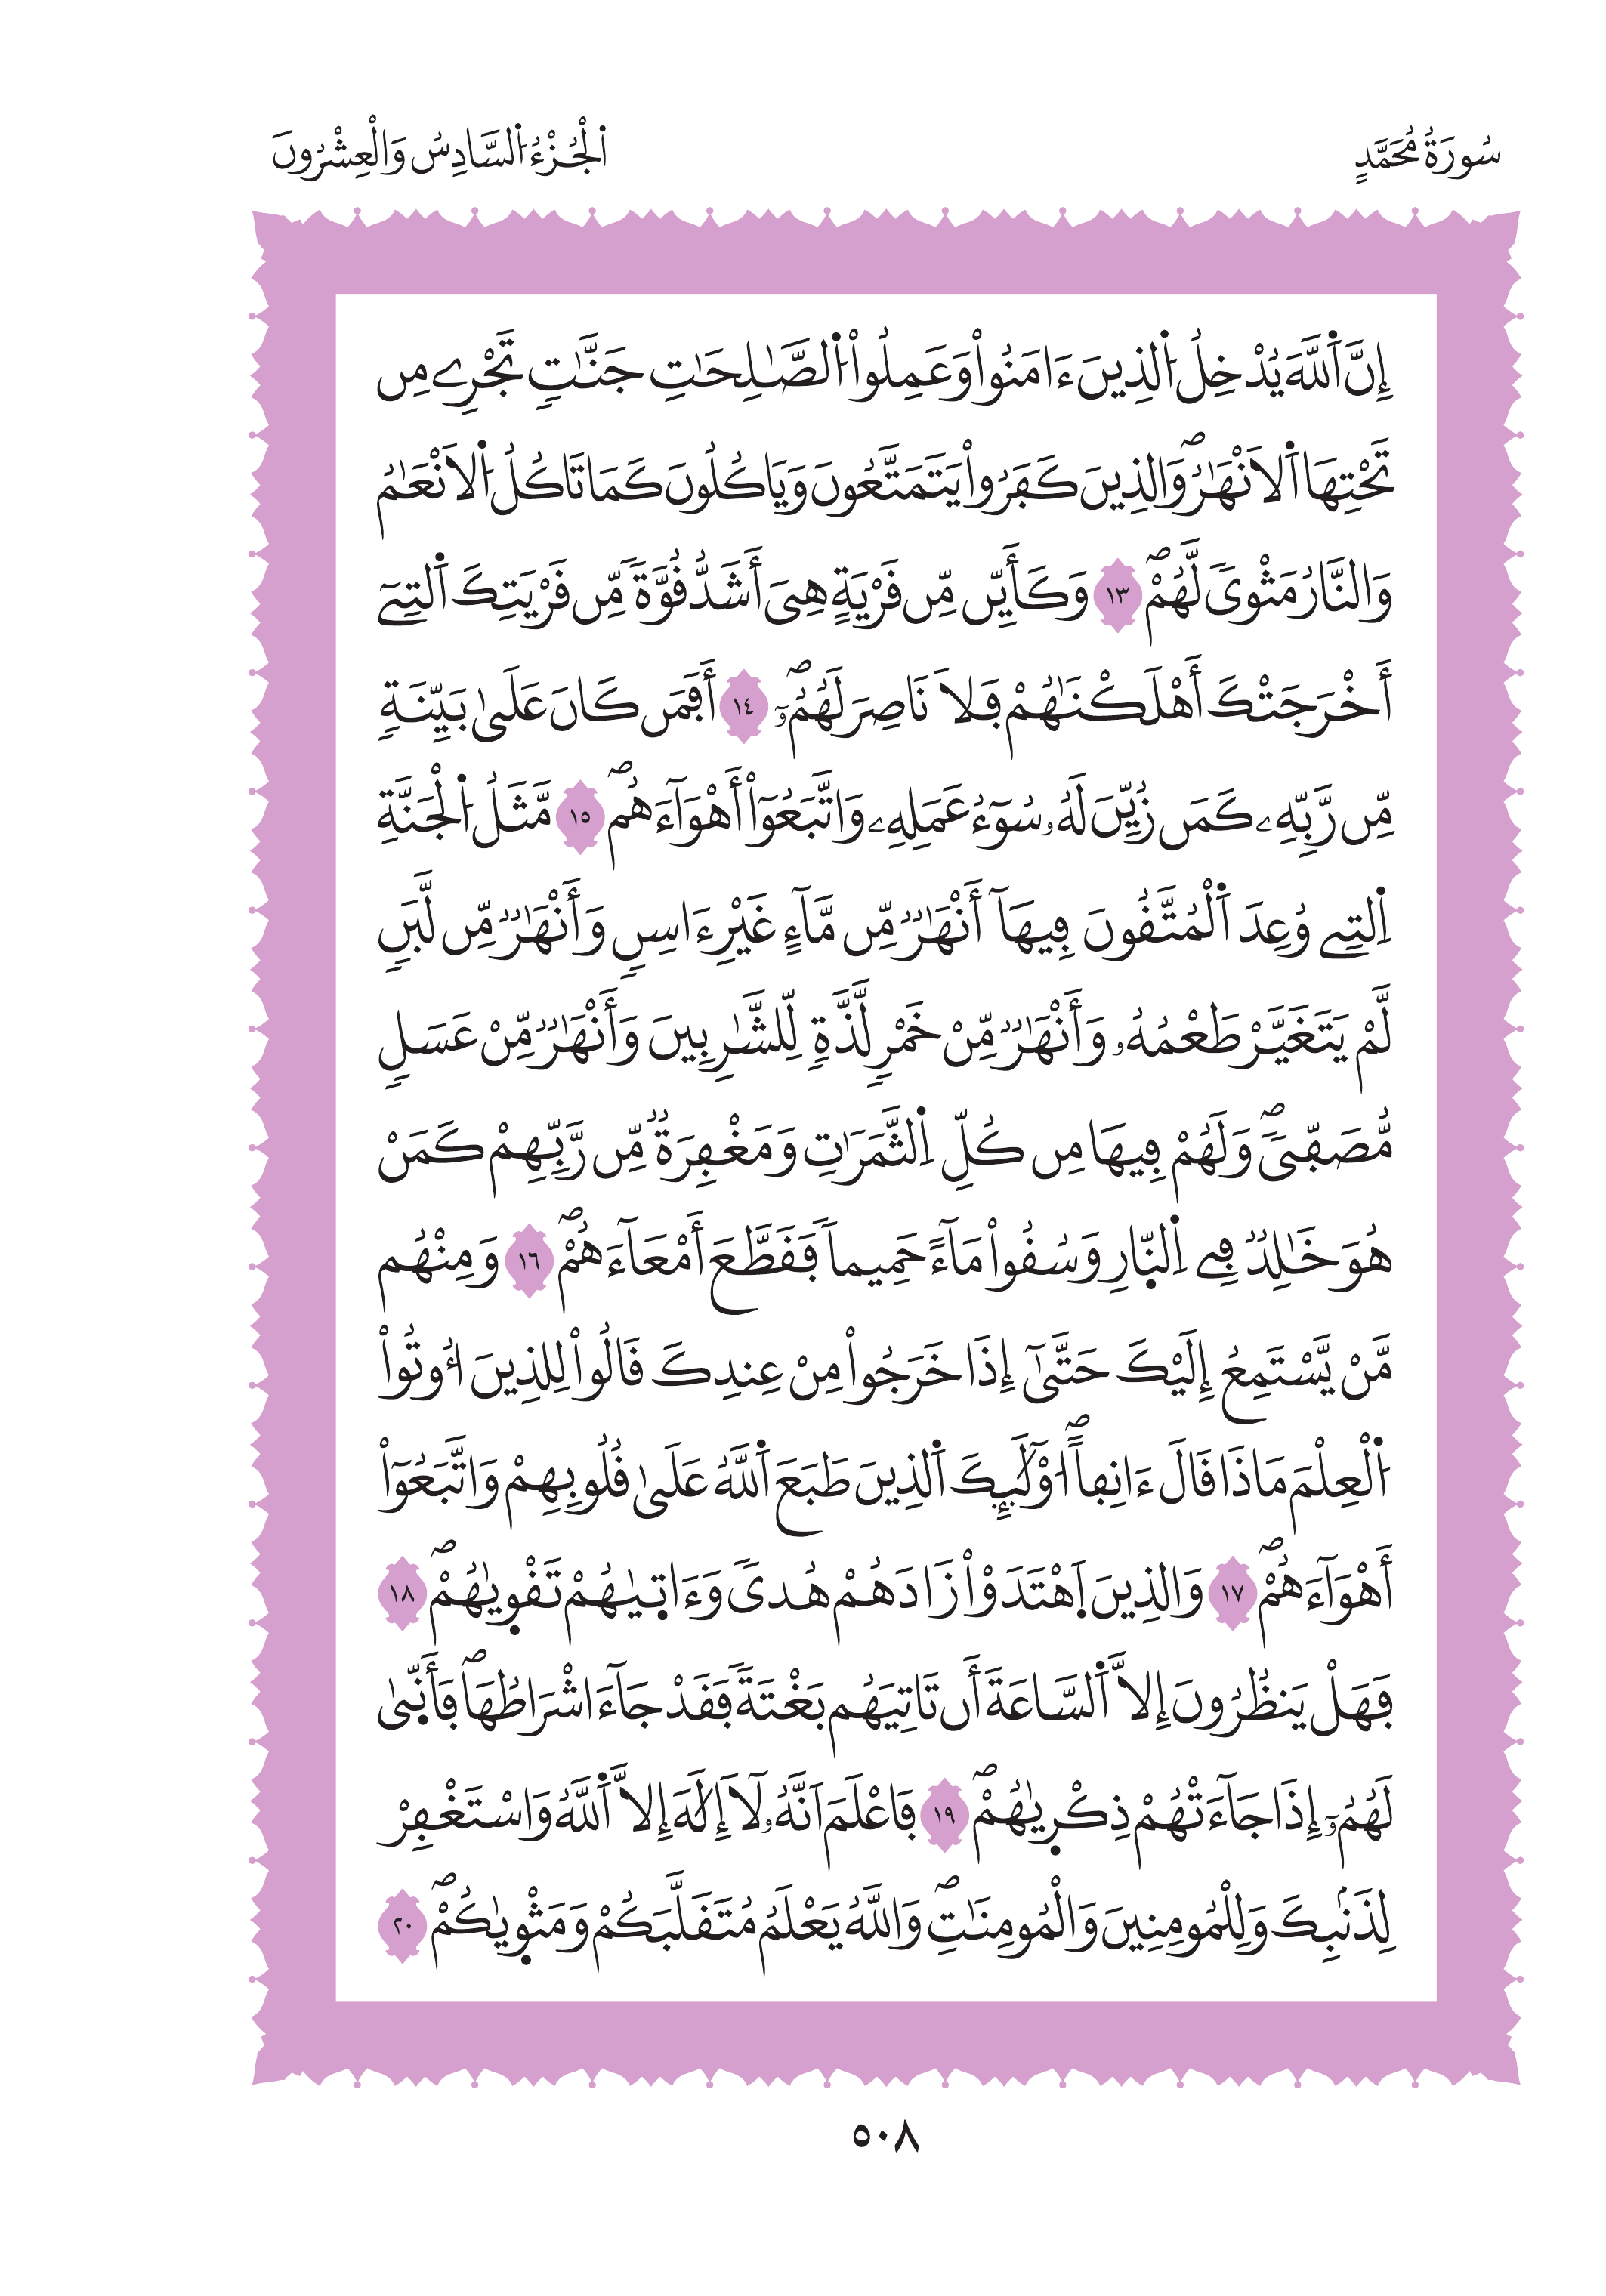 سُورَةُ مُحَمَّدٍ
اَلْجُزْءُ اُلسَّادِسُ وَالْعِشْرُونَ
إِنَّ اَللَّهَ يُدْخِلُ اُلذِينَ ءَامَنُواْ وَعَمِلُواْ اُلصَّٰلِحَٰتِ جَنَّٰتٖ تَجْرِے مِن
تَحْتِهَا اَلَانْهَٰرُۖ وَالذِينَ كَفَرُواْ يَتَمَتَّعُونَ وَيَاكُلُونَ كَمَا تَاكُلُ اُلَانْعَٰمُ
وَالنَّارُ مَثْويٗ لَّهُمْۖ ١٣ وَكَأَيِّن مِّن قَرْيَةٍ هِيَ أَشَدُّ قُوَّةٗ مِّن قَرْيَتِكَ اَلتِےٓ
أَخْرَجَتْكَ أَهْلَكْنَٰهُمْ فَلَا نَاصِرَ لَهُمُۥٓۖ ١٤ أَفَمَن كَانَ عَلَيٰ بَيِّنَةٖ
مِّن رَّبِّهِۦ كَمَن زُيِّنَ لَهُۥ سُوٓءُ عَمَلِهِۦ وَاتَّبَعُوٓاْ أَهْوَآءَهُمۖ ١٥ مَّثَلُ اُلْجَنَّةِ
اِلتِے وُعِدَ اَلْمُتَّقُونَ فِيهَآ أَنْهَٰرٞ مِّن مَّآءٍ غَيْرِ ءَاسِنٖ وَأَنْهَٰرٞ مِّن لَّبَنٖ
لَّمْ يَتَغَيَّرْ طَعْمُهُۥ وَأَنْهَٰرٞ مِّنْ خَمْرٖ لَّذَّةٖ لِّلشَّٰرِبِينَ وَأَنْهَٰرٞ مِّنْ عَسَلٖ
مُّصَفّيٗۖ وَلَهُمْ فِيهَا مِن كُلِّ اِلثَّمَرَٰتِ وَمَغْفِرَةٞ مِّن رَّبِّهِمْ كَمَنْ
هُوَ خَٰلِدٞ فِے اِلنّ۪ارِ وَسُقُواْ مَآءً حَمِيماٗ فَقَطَّعَ أَمْعَآءَهُمْۖ ١٦ وَمِنْهُم
مَّنْ يَّسْتَمِعُ إِلَيْكَ حَتَّيٰٓ إِذَا خَرَجُواْ مِنْ عِندِكَ قَالُواْ لِلذِينَ أُوتُواْ
اُلْعِلْمَ مَاذَا قَالَ ءَانِفاًۖ اُوْلَٰٓئِكَ اَلذِينَ طَبَعَ اَللَّهُ عَلَيٰ قُلُوبِهِمْ وَاتَّبَعُوٓاْ
أَهْوَآءَهُمْۖ ١٧ وَالذِينَ اَهْتَدَوْاْ زَادَهُمْ هُديٗ وَءَات۪يٰهُمْ تَقْو۪يٰهُمْۖ ١٨
فَهَلْ يَنظُرُونَ إِلَّا اَلسَّاعَةَ أَن تَاتِيَهُم بَغْتَةٗ فَقَدْ جَآءَ اشْرَاطُهَاۖ فَأَنّ۪يٰ
لَهُمُۥٓ إِذَا جَآءَتْهُمْ ذِكْر۪يٰهُمْۖ ١٩ فَاعْلَمَ اَنَّهُۥ لَآ إِلَٰهَ إِلَّا اَللَّهُ وَاسْتَغْفِرْ
لِذَنۢبِكَ وَلِلْمُومِنِينَ وَالْمُومِنَٰتِۖ وَاللَّهُ يَعْلَمُ مُتَقَلَّبَكُمْ وَمَثْو۪يٰكُمْۖ ٢٠
٥٠٨